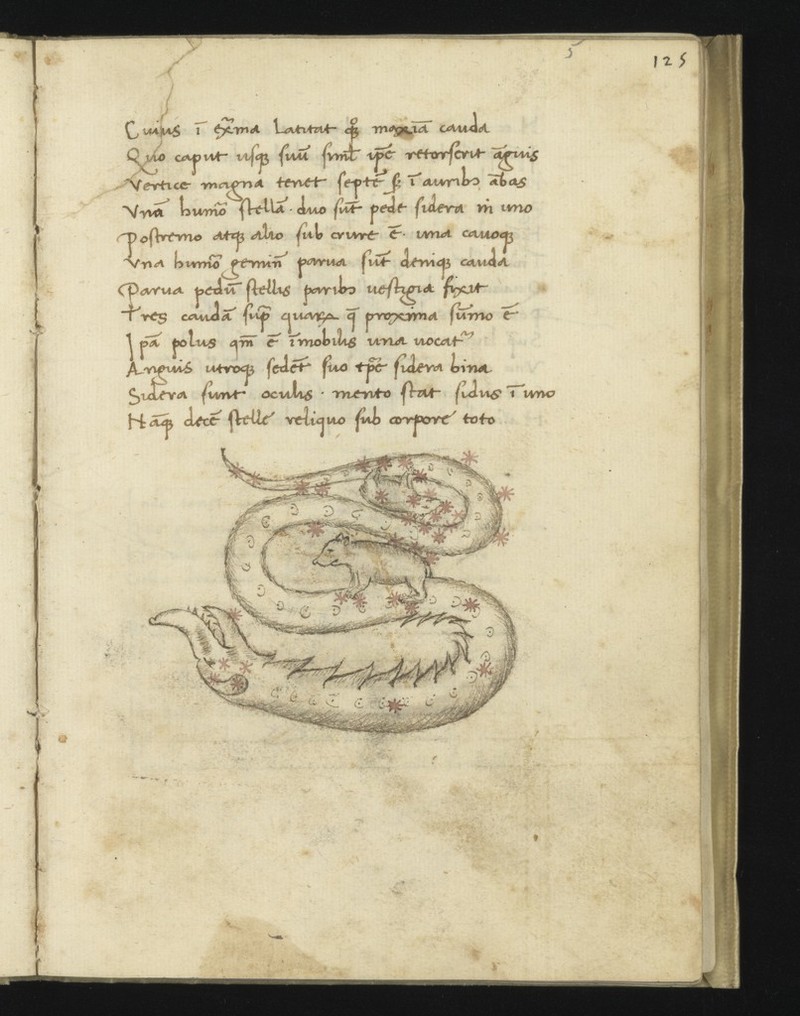 5
125
Cuius ī ex̄ma latitat qꝫ maxīa cauda
Quo caput usqꝫ suū siml̄ ip̄e retorserit āguis
Vertice magna tenet septē sꝫ ī auribꝫ ābas
Vnā humō stellā · duo sūt pede sidera in uno
Postremo atqꝫ alio sub crure ē · una cauoqꝫ
Vna humō geminī parua sūt deniqꝫ cauda
Parua pedū stellis paribꝫ uestigia fixit
Tres caudā sup̄ quaꝝ q̄ proxima sūmo ē
Ipā polus qm̄ ē īmobilis una uocat᷑
Anguis utroqꝫ sedēt suo tp̄e sidera bina
Sidera sunt oculis · mento stat sidus ī uno
Nāqꝫ decē stelle reliquo sub corpore toto